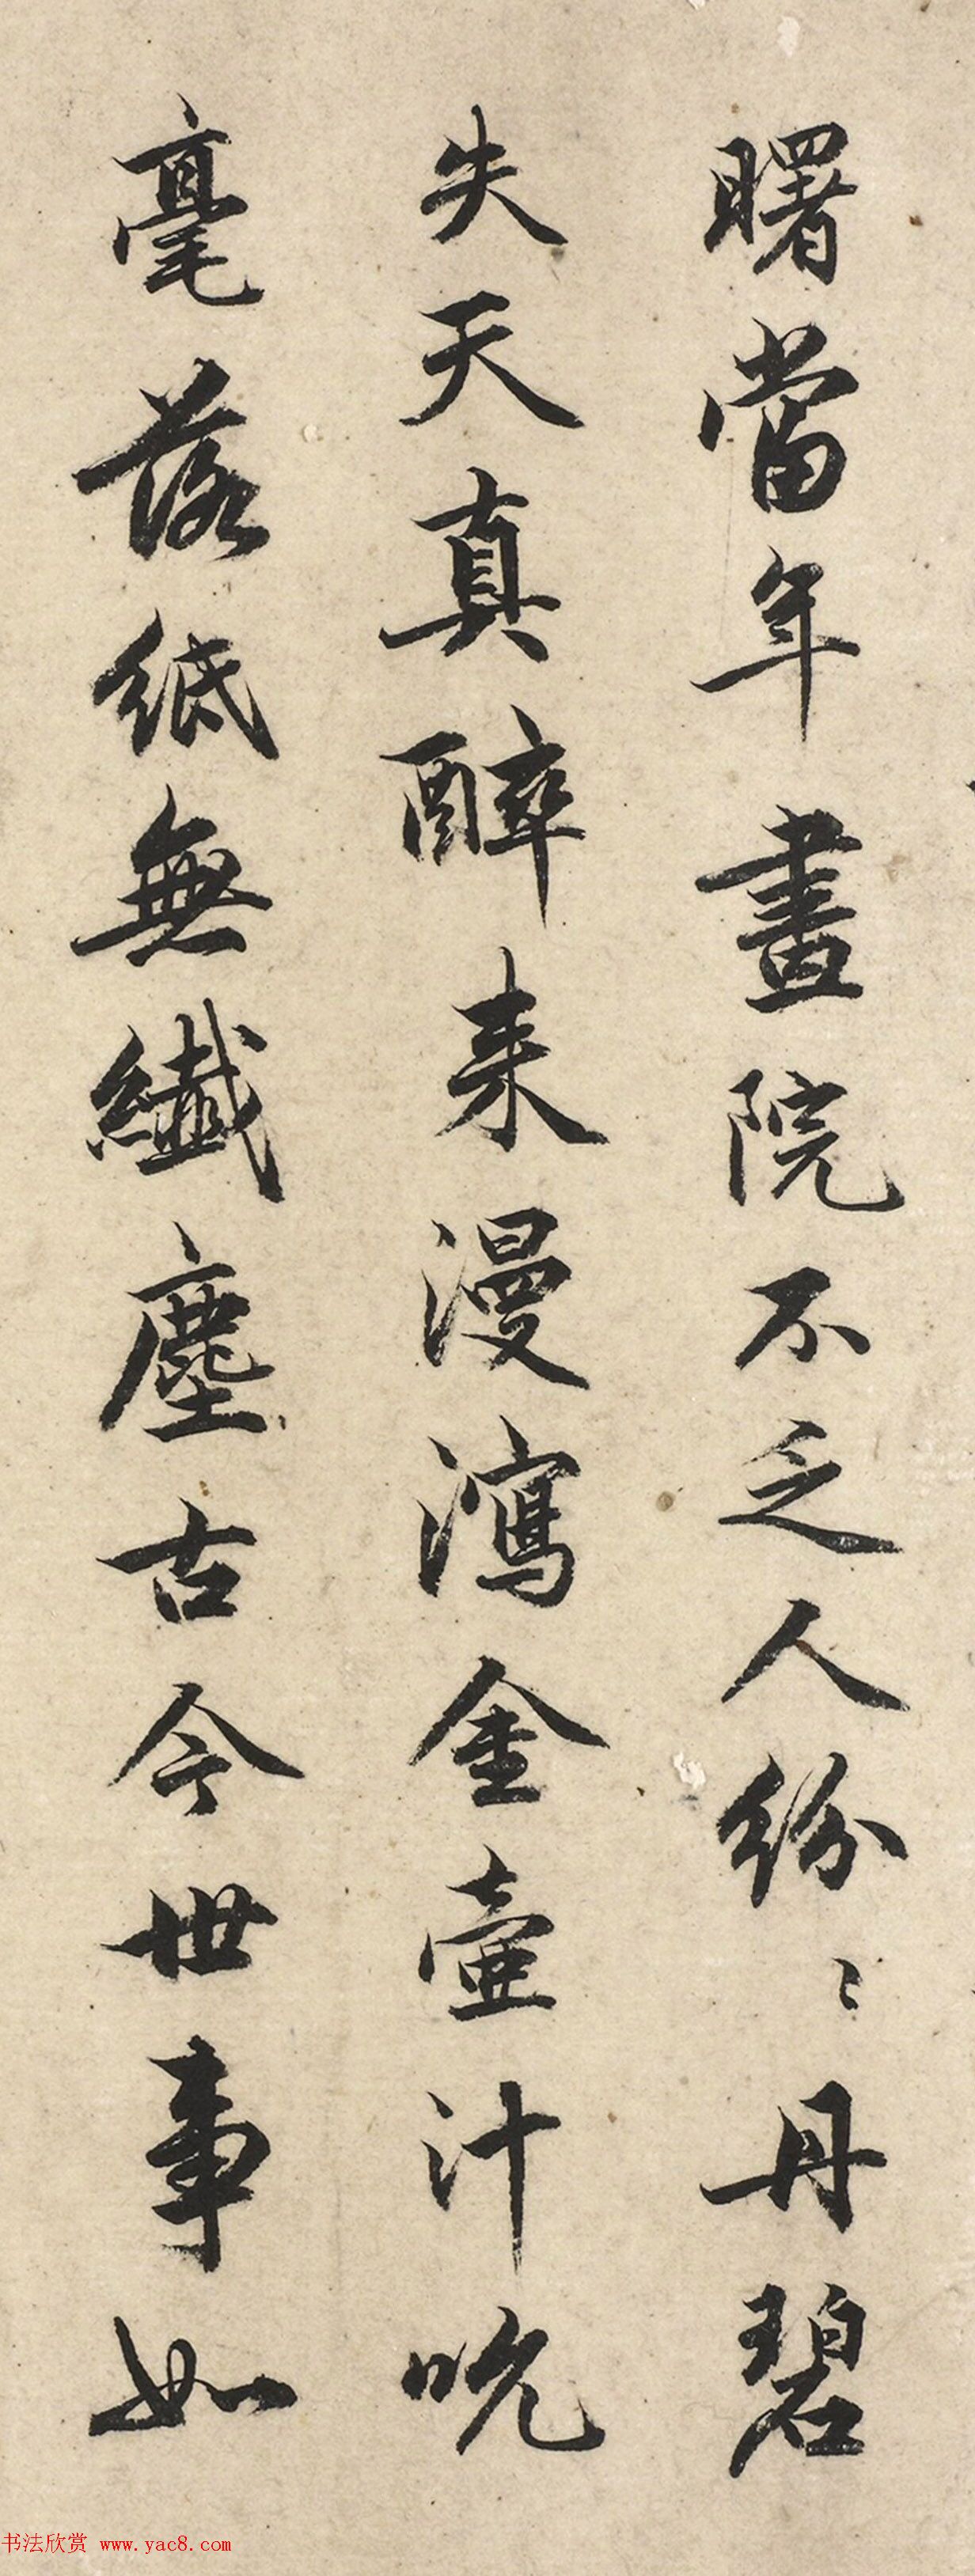 曙當年畫院不乏人紛〻丹碧
失天真醉来漫瀉金壷汁吮
毫落紙無纖塵古今世事如
书法欣赏 www.yac8.com